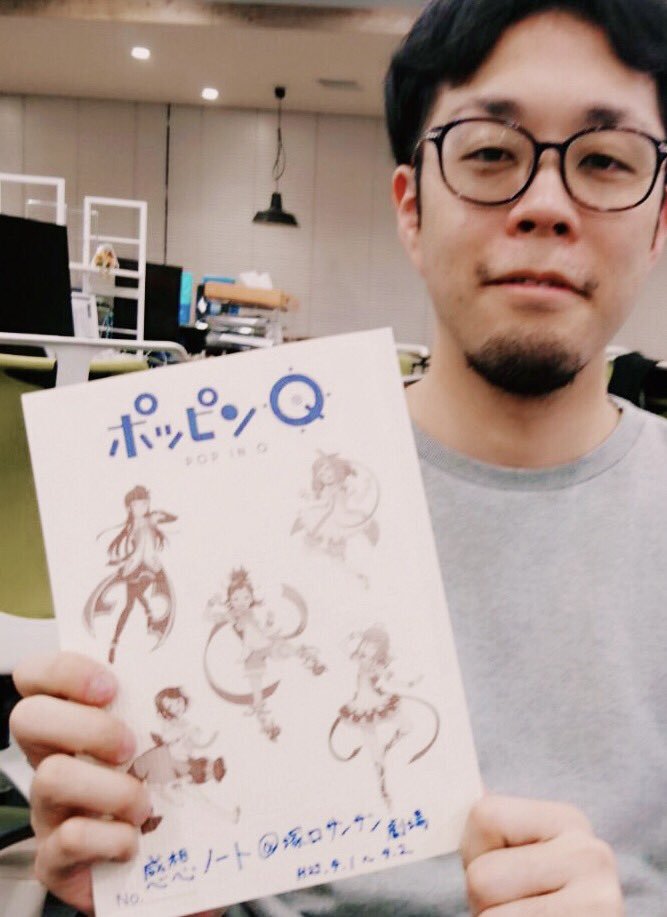 ポッピンQ
POP IN Q
感想ノート@塚口サンサン劇場
H29.4.1〜4.2
No.